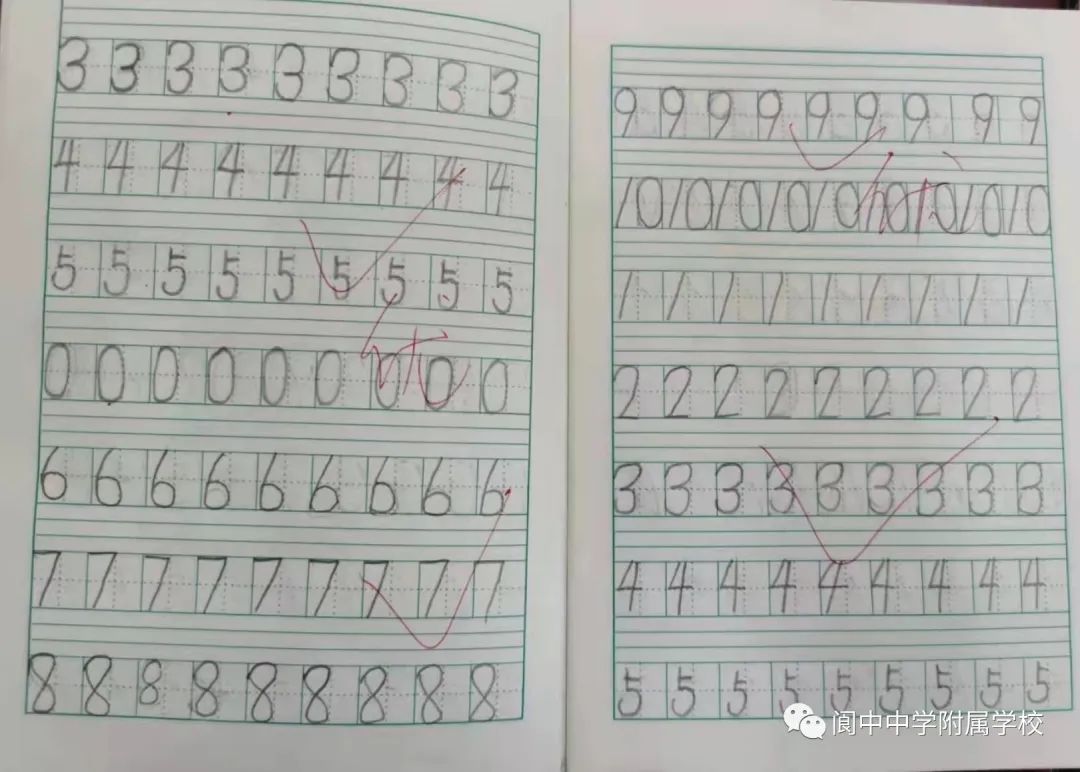 3 3 3 3 3 3 3 3 3
4 4 4 4 4 4 4 4 4
5 5 5 5 5 5 5 5 5
0 0 0 0 0 0 0 0 0
6 6 6 6 6 6 6 6 6
7 7 7 7 7 7 7 7 7
8 8 8 8 8 8 8 8 8
9 9 9 9 9 9 9 9 9
10 10 10 10 10 10 10 10 10
1 1 1 1 1 1 1 1 1
2 2 2 2 2 2 2 2 2
3 3 3 3 3 3 3 3 3
4 4 4 4 4 4 4 4 4
5 5 5 5 5 5 5 5 5
阆中中学附属学校